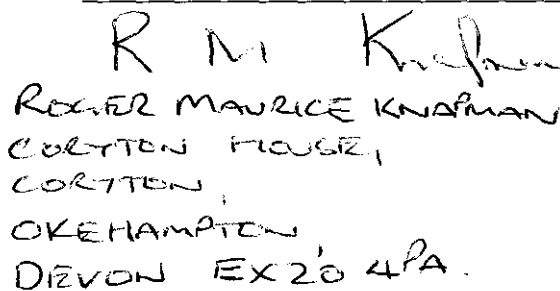 R M Knapman
ROGER MAURICE KNAPMAN
CORYTON HOUSE,
CORYTON,
OKEHAMPTON,
DEVON EX20 4PA.